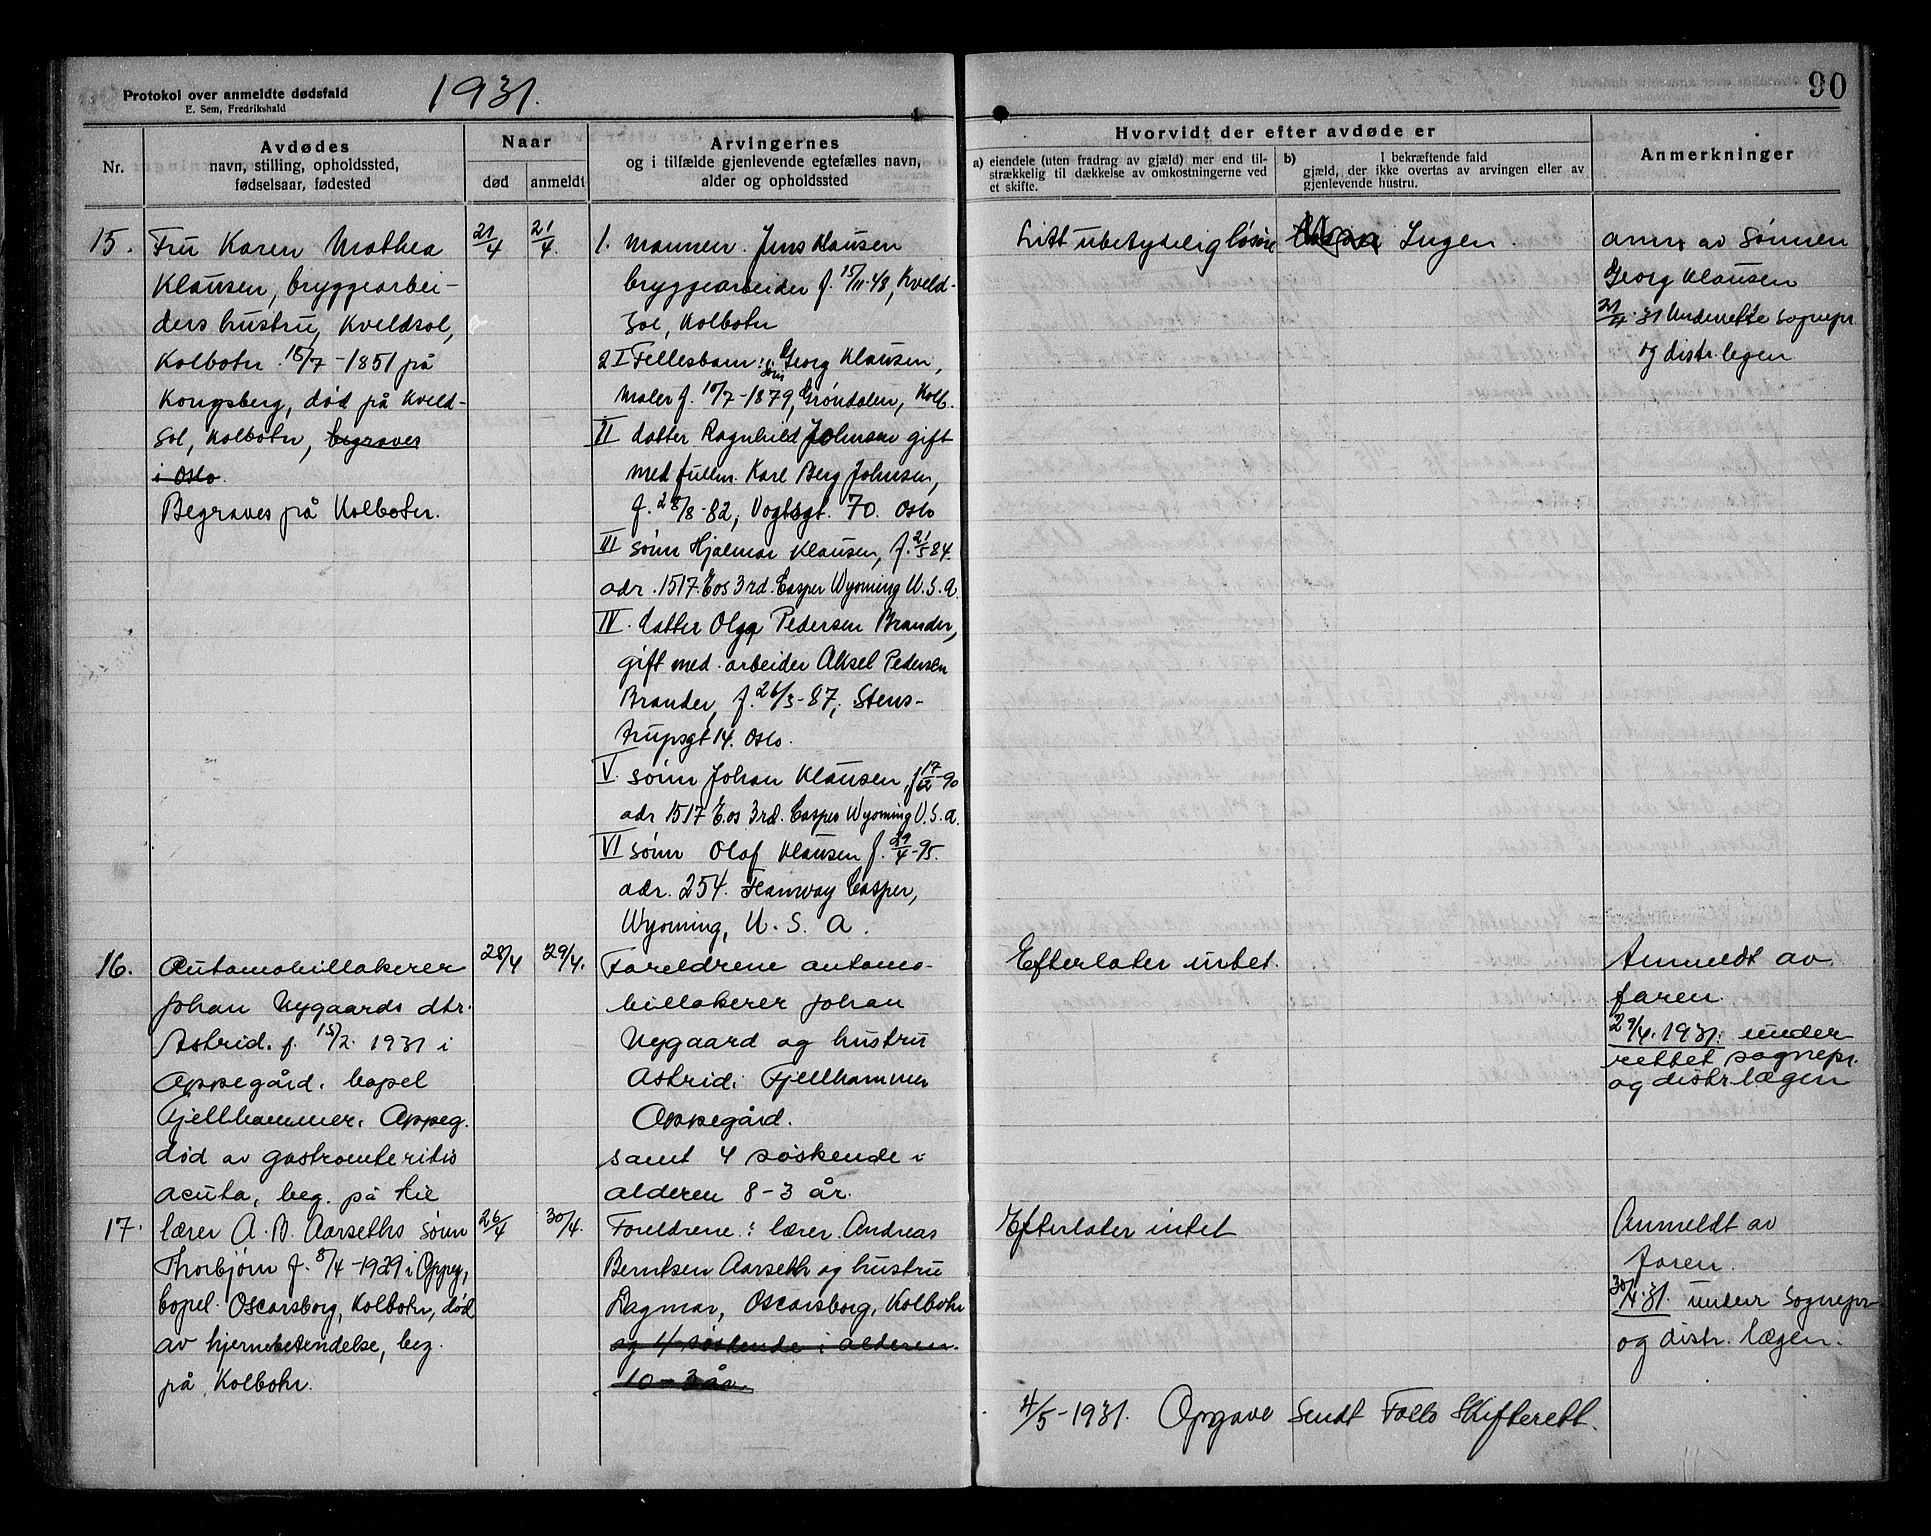 Protokol over anmeldte dødsfald
E. Sem, Fredrikshald
1931.
90
Nr.
Avdødes
navn, stilling, opholdssted,
fødselsaar, fødested
Naar
død
anmeldt
Arvingernes
og i tilfælde gjenlevende egtefælles navn,
alder og opholdssted
Hvorvidt der efter avdøde er
a) eiendele (uten fradrag av gjæld) mer end til-
strækkelig til dækkelse av omkostningerne ved
et skifte.
b) I bekræftende fald
gjæld, der ikke overtas av arvingen eller av
gjenlevende hustru.
Anmerkninger
15.
Fru Karen Mathea
Klausen, bryggearbei-
ders hustru, Kveldsol,
Kolbotn. 18/7-1851 på
Kongsberg, død på Kveld-
sol, Kolbotn, begraves
i Oslo.
Begraves på Kolbotn.
21/4
21/4.
1. Mannen. Jens Klausen
bryggearbeider f. 15/11-48, Kveld-
sol, Kolbotn
2 I Fellesbarn: søn Georg Klausen,
Maler f. 10/7-1879, Grøndalen, Kolb.
II datter Ragnhild Johnsen gift
med fullm. Karl Berg Johnsen,
f. 28/8-82, Vogtsgt. 70. Oslo
III sønn Hjalmar Klausen, f. 21/5 84.
adr. 1517. Eos 3rd. Casper Wyoming U.S.A.
IV. datter Olga Pedersen Brander,
gift med arbeider Aksel Pedersen
Brander, f. 26/3-87, Stens-
trupsgt 14. Oslo.
V. sønn Johan Klausen, f 17/12-90
adr 1517 E.os 3rd. Casper Wyoming U.S.A.
VI sønn Olaf Klausen f. 29/4-95.
adr. 254. Hanway Casper,
Wyoming, U.S.A.
Litt ubetydelig løsøre
Ingen.
anm av sønnen
Georg Klausen
21/4-31 Underrette sognepr.
og distr. legen
16.
Automobillakerer
Johan Nygaards dtr.
Astrid. f. 15/2. 1931 i
Oppegård. bopel
Fjellhammer, Oppeg.
død av gastroenteritis
acuta, beg. på Lie
28/4
29/4.
Foreldrene automo-
billakerer Johan
Nygaard og hustru
Astrid. Fjellhammer
Oppegård.
samt 4 søskende i
alderen 8-3 år.
Efterlater intet.
Anmeldt av
faren.
29/4. 1931. under
rettet sognepr.
og distr. lægen
17.
lærer A. B. Aarseths sønn
Thorbjørn f. 8/4-1929 i Oppeg,
bopel. Oscarsborg, Kolbotn, død
av hjernebetendelse, beg.
på Kolbotn.
26/4
30/4.
Foreldrene: lærer Andreas
Berntsen Aarseth og hustru
Dagmar, Oscarsborg, Kolbotn
og 4 søskende i alderen
10-3 år.
Efterlater intet
Anmeldt av
faren.
30/4.31. under sognepr
og distr. lægen.
4/5-1931. Opgave sendt Follo Skifterett.